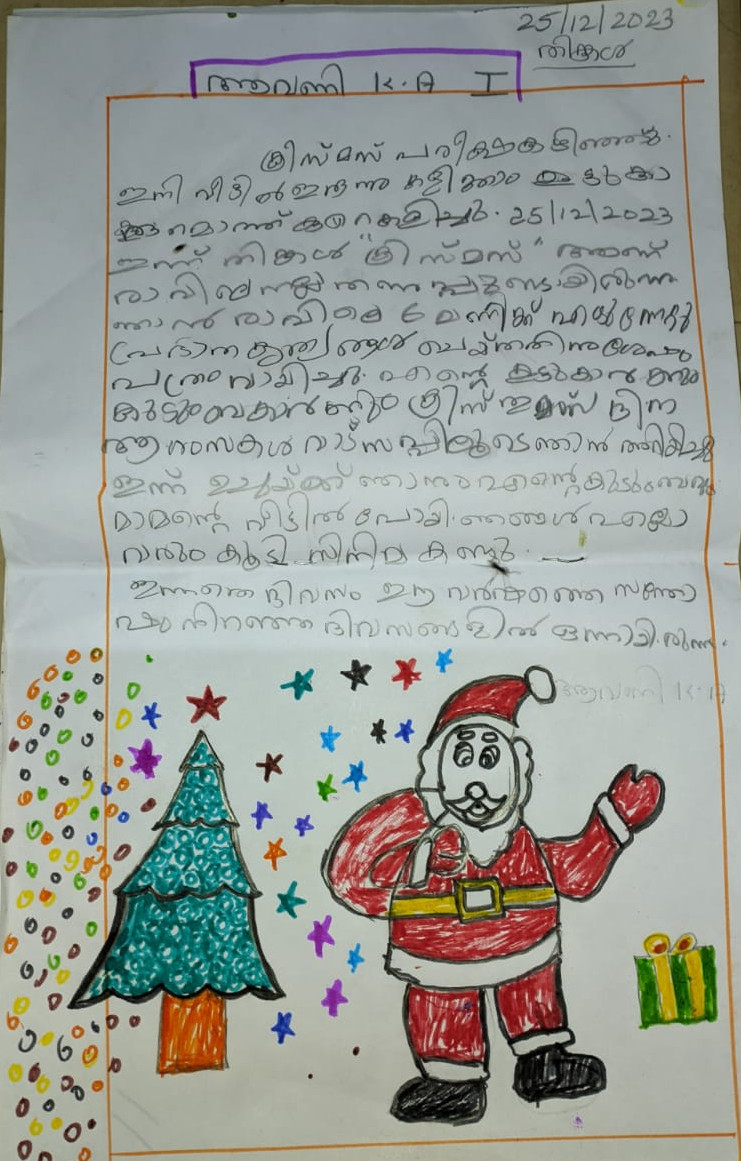 25/12/2023
തിങ്കൾ
ആവണി K.A I
ക്രിസ്മസ് പരീക്ഷകഴിഞ്ഞു.
ഇനി വീട്ടിൽഇരുന്നു കളിക്കാം കൂട്ടുകാ
രുമൊത്ത് കുറെകളിച്ചു. 25/12/2023
ഇന്ന് തിങ്കൾ "ക്രിസ്മസ്" ആണ്
രാവിലെ
ഞാൻ രാവിലെ 6 മണിക്ക് എഴുന്നേറ്റു
പ്രഭാത കൃത്യങ്ങൾ ചെയ്തതിനുശേഷം
പത്രം വായിച്ചു. എന്റെ കൂട്ടുകാർക്കും
കുടുംബകാർക്കും ക്രിസ്തുമസ് ദിന
ആശംസകൾ വാട്സപ്പിലൂടെഞാൻ അറിയിച്ചു
ഇന്ന് ഉച്ചയ്ക്ക് ഞാനുംഎന്റെകുടുംബവും
മാമന്റെ വീട്ടിൽ പോയി. ഞങ്ങൾഎല്ലാ
വരും കൂടി സിനിമ കണ്ടു.
ഇന്നത്തെ ദിവസം ഈ വർഷത്തെ സന്തോ
ഷംനിറഞ്ഞ ദിവസങ്ങളിൽ ഒന്നായിരുന്നു.
ആവണി K.A